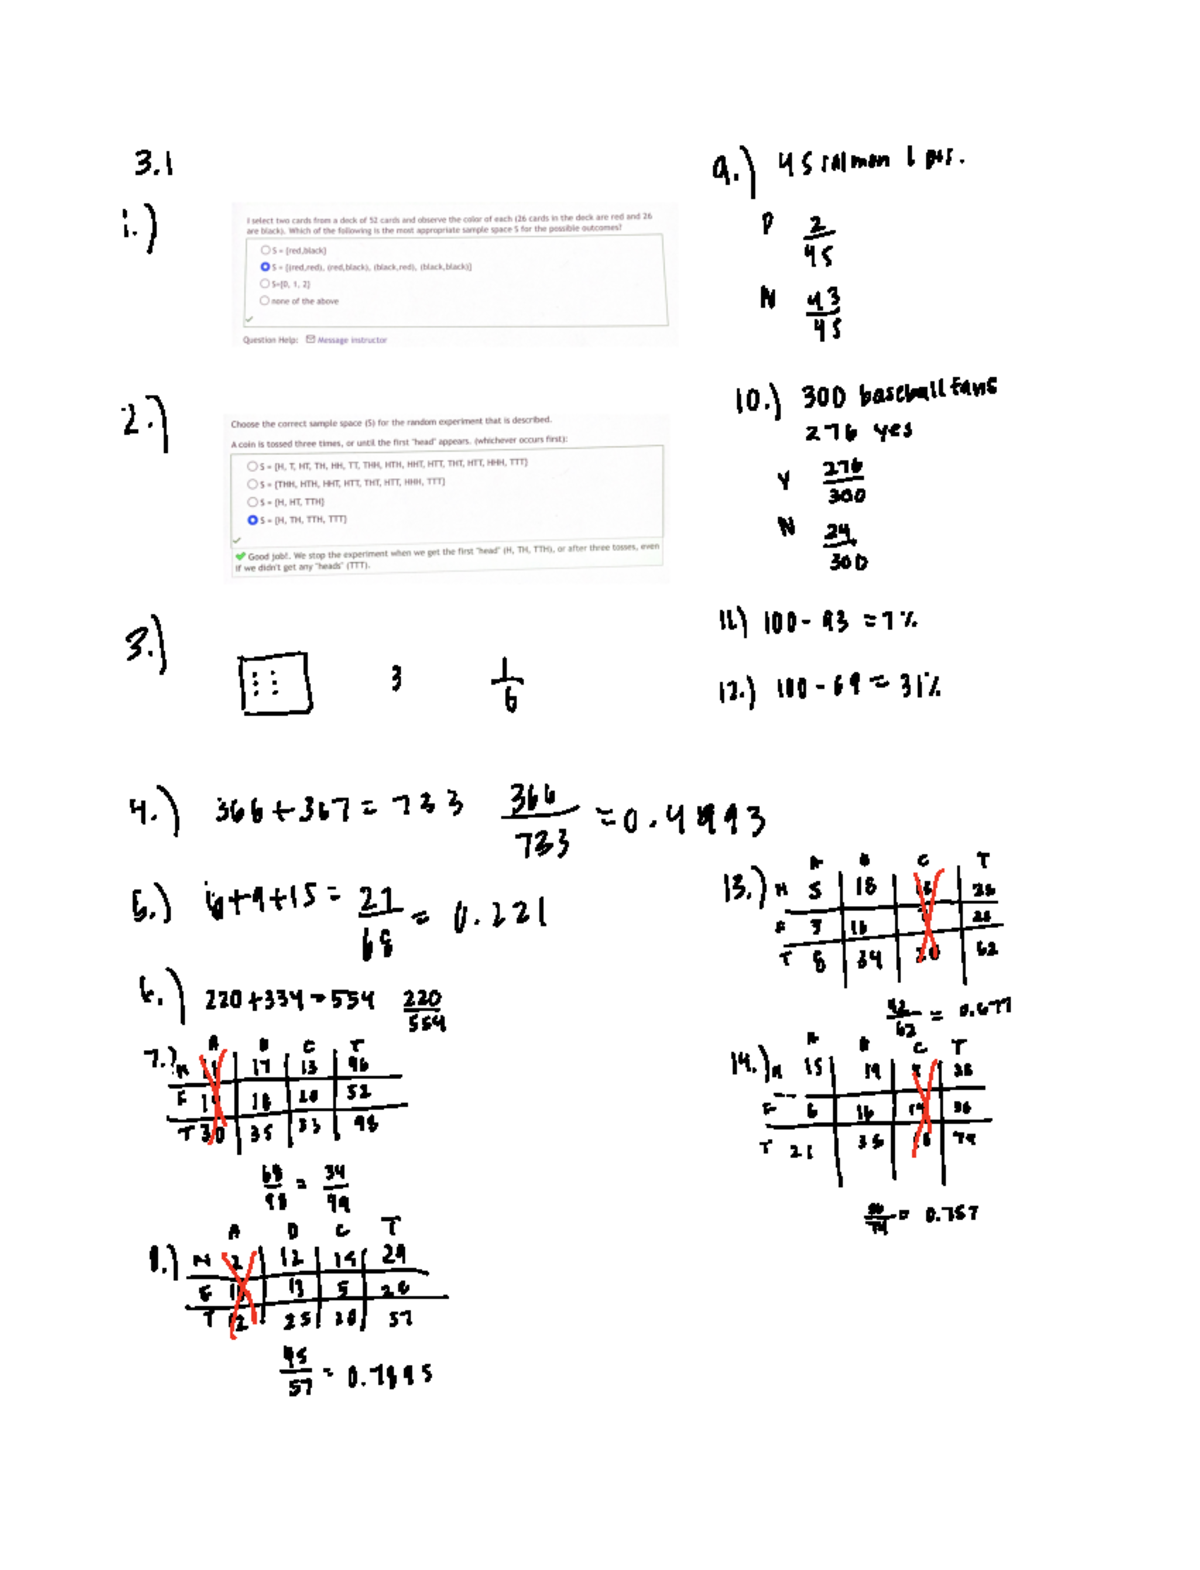 3.1
1.)
I select two cards from a deck of 52 cards and observe the color of each (26 cards in the deck are red and 26
are black). Which of the following is the most appropriate sample space S for the possible outcomes?
S = {red,black}
S = {(red,red), (red,black), (black,red), (black,black)}
S={0, 1, 2}
none of the above
Question Help: Message instructor
2.)
Choose the correct sample space (S) for the random experiment that is described.
A coin is tossed three times, or until the first "head" appears. (whichever occurs first):
S = {H, T, HT, TH, HH, TT, THH, HTH, HHT, HTT, THT, HTT, HHH, TTT}
S = {THH, HTH, HHT, HTT, THT, HTT, HHH, TTT}
S = {H, HT, TTH}
S = {H, TH, TTH, TTT}
Good job!. We stop the experiment when we get the first "head" (H, TH, TTH), or after three tosses, even
if we didn't get any "heads" (TTT).
3.)
3
1
6
4.) 366+367 = 733 366
733
=0.4993
5.) 6+9+15 = 21
68
= 0.221
6.) 220+334=554 220
554
7.) A B C T
M 17 13 46
F 18 20 52
T 30 35 33 98
68
98
= 34
49
8.) A B C T
M 2 12 15 29
F 13 5 28
T 12 25 20 57
45
57
= 0.7895
9.) 45 salmon
P 2
45
N 43
45
10.) 300 baseball fans
276 yes
Y 276
300
N 24
300
11.) 100-93 =7%
12.) 100-69 = 31%
13.) A B C T
M 5 18
F 3 16
T 8 34 20 62
42
62
= 0.677
14.) A B C T
M 15 19 38
F 6 16 36
T 21 35 74
56
74
= 0.757